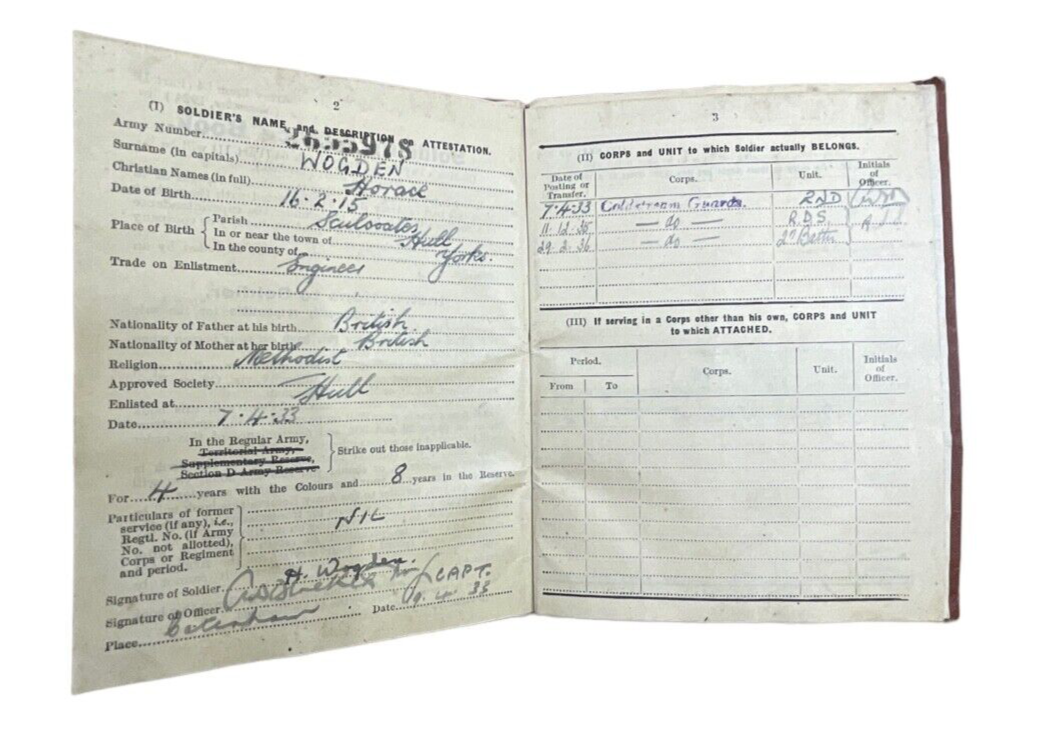 2
(I) SOLDIER'S NAME and DESCRIPTION ATTESTATION.
Army Number 2655978
Surname (in capitals) WOGDEN
Christian Names (in full) Horace
Date of Birth 16·2·15
Place of Birth { Parish Sculcoates
In or near the town of Hull
In the county of Yorks.
Trade on Enlistment Engineer
Nationality of Father at his birth British
Nationality of Mother at her birth British
Religion Methodist
Approved Society —
Enlisted at Hull
Date 7·4·33
In the Regular Army,
Territorial Army,
Supplementary Reserve,
Section D Army Reserve
} Strike out those inapplicable.
For 4 years with the Colours and 8 years in the Reserve.
Particulars of former
service (if any), i.e.,
Regtl. No. (if Army
No. not allotted),
Corps or Regiment
and period.
NIL
Signature of Soldier. H. Wogden.
Signature of Officer. CAPT.
Place Caterham Date
3
(II) CORPS and UNIT to which Soldier actually BELONGS.
Date of Posting or Transfer. Corps. Unit. Initials of Officer.
7·4·33 Coldstream Guards. 2ND
11.12.35 — do — R.D.S.
29.2.36 — do — 2nd Battn
(III) If serving in a Corps other than his own, CORPS and UNIT
to which ATTACHED.
Period. Corps. Unit. Initials of Officer.
From To